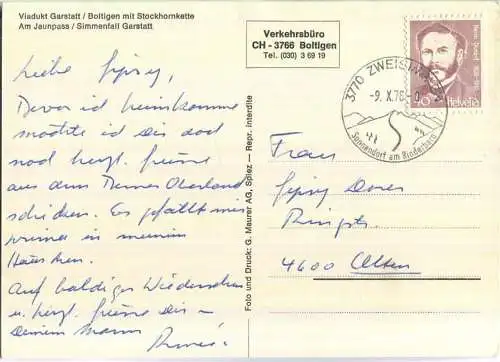 Viadukt Garstatt / Boltigen mit Stockhornkette
Am Jaunpass / Simmenfall Garstatt
Verkehrsbüro
CH - 3766 Boltigen
Tel. (030) 3 69 19
3770 ZWEISIMMEN
-9. X.78
Sonnendorf am Rinderberg
40 Helvetia
Foto und Druck: G. Maurer AG, Spiez — Repr. interdite
Liebe
Bevor ich heimkomme
möchte ich dir doch
noch herzl. Grüsse
aus dem Berner Oberland
schicken. Es gefällt mir
prima in meinem
Häuschen.
Auf baldiges Wiedersehen
u. herzl. Grüsse dir –
deinem Mann
Frau
4600 Olten